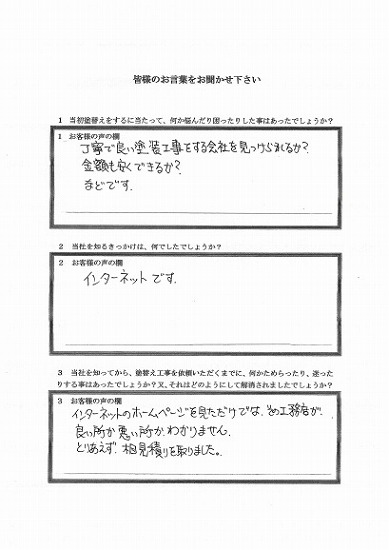 皆様のお言葉をお聞かせ下さい
1 当初塗替えをするに当たって、何か悩んだり困ったりした事はあったでしょうか?
1 お客様の声の欄
丁寧で良い塗装工事をする会社を見つけられるか?
金額も安くできるか?
などです。
2 当社を知るきっかけは、何でしたでしょうか?
2 お客様の声の欄
インターネットです。
3 当社を知ってから、塗替え工事を依頼いただくまでに、何かためらったり、迷った
りする事はあったでしょうか?又、それはどのようにして解消されましたでしょうか?
3 お客様の声の欄
インターネットのホームページを見ただけでは、どの工務店が、
良い所か悪い所か、わかりません。
とりあえず、相見積りを取りました。